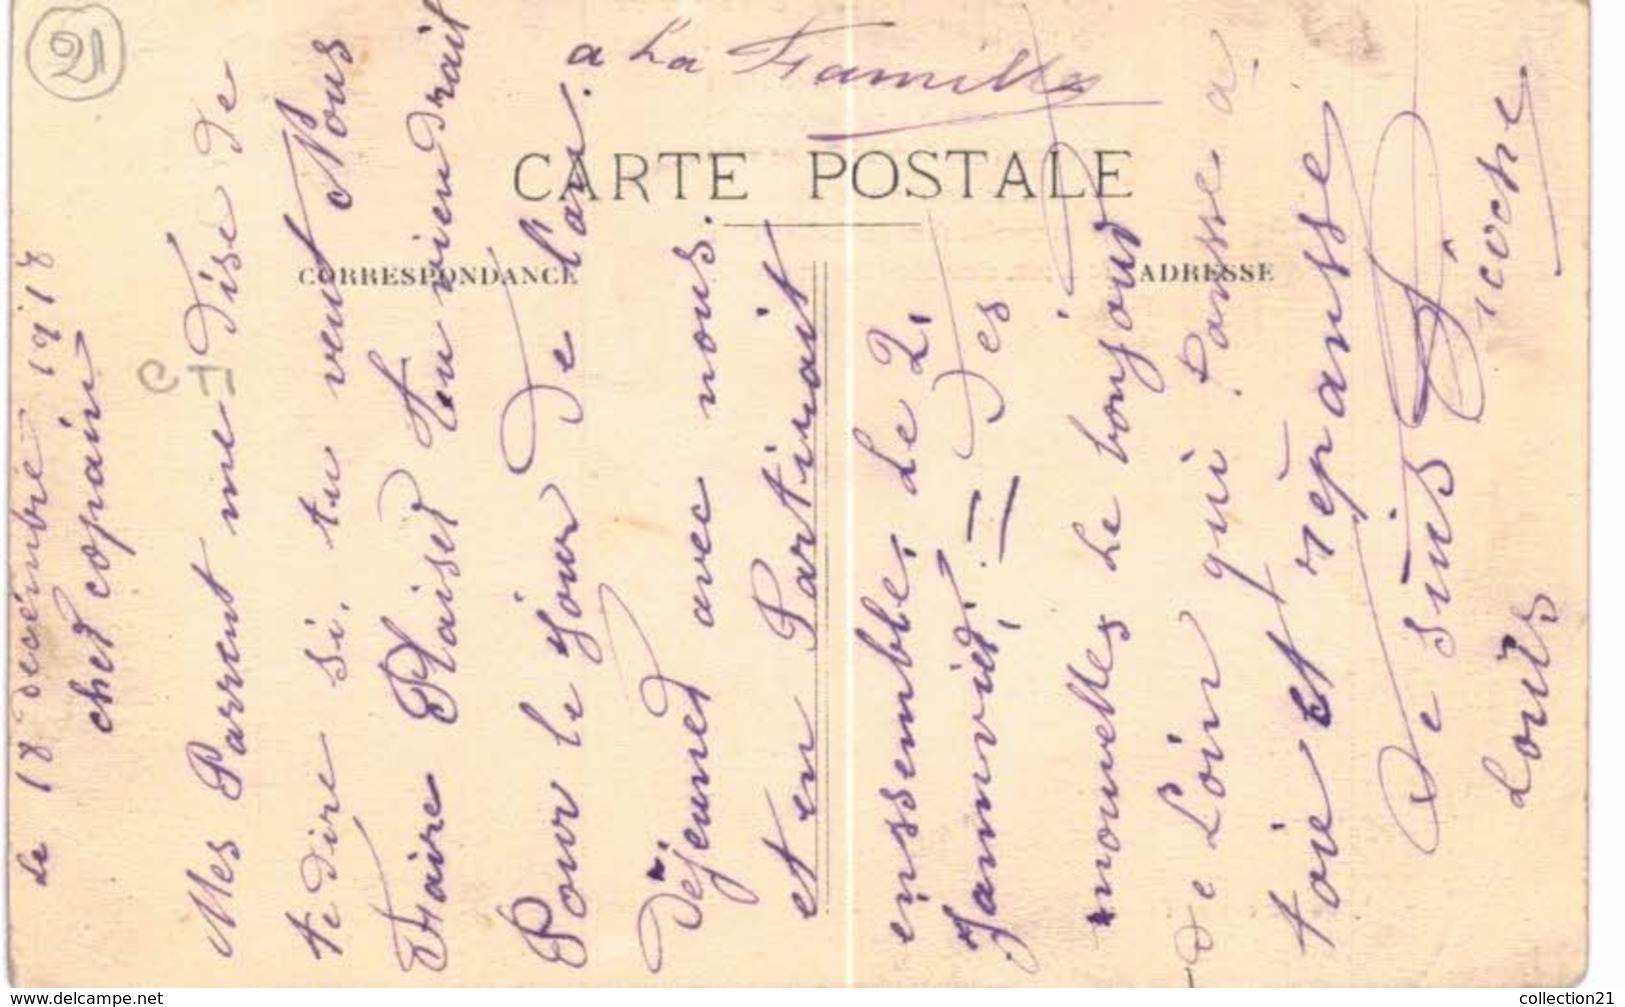 21
a La Famille
CARTE POSTALE
CORRESPONDANCE
ADRESSE
Le 18 decémbre 1917
cher copain
Mes Parrent me Dise de
te dire si. tu veut Nous
Faire Plaisir tu viendrait
Pour le jour De l'an.
Déjeuner avec nous.
et en Partirait
enssemble, Le 2,
Janvier, = Jes
mouvelles Le bonjour
De Loin qui Pansse a
toie et répansse
De suis
Louis Sicoche
www.delcampe.net
collection21